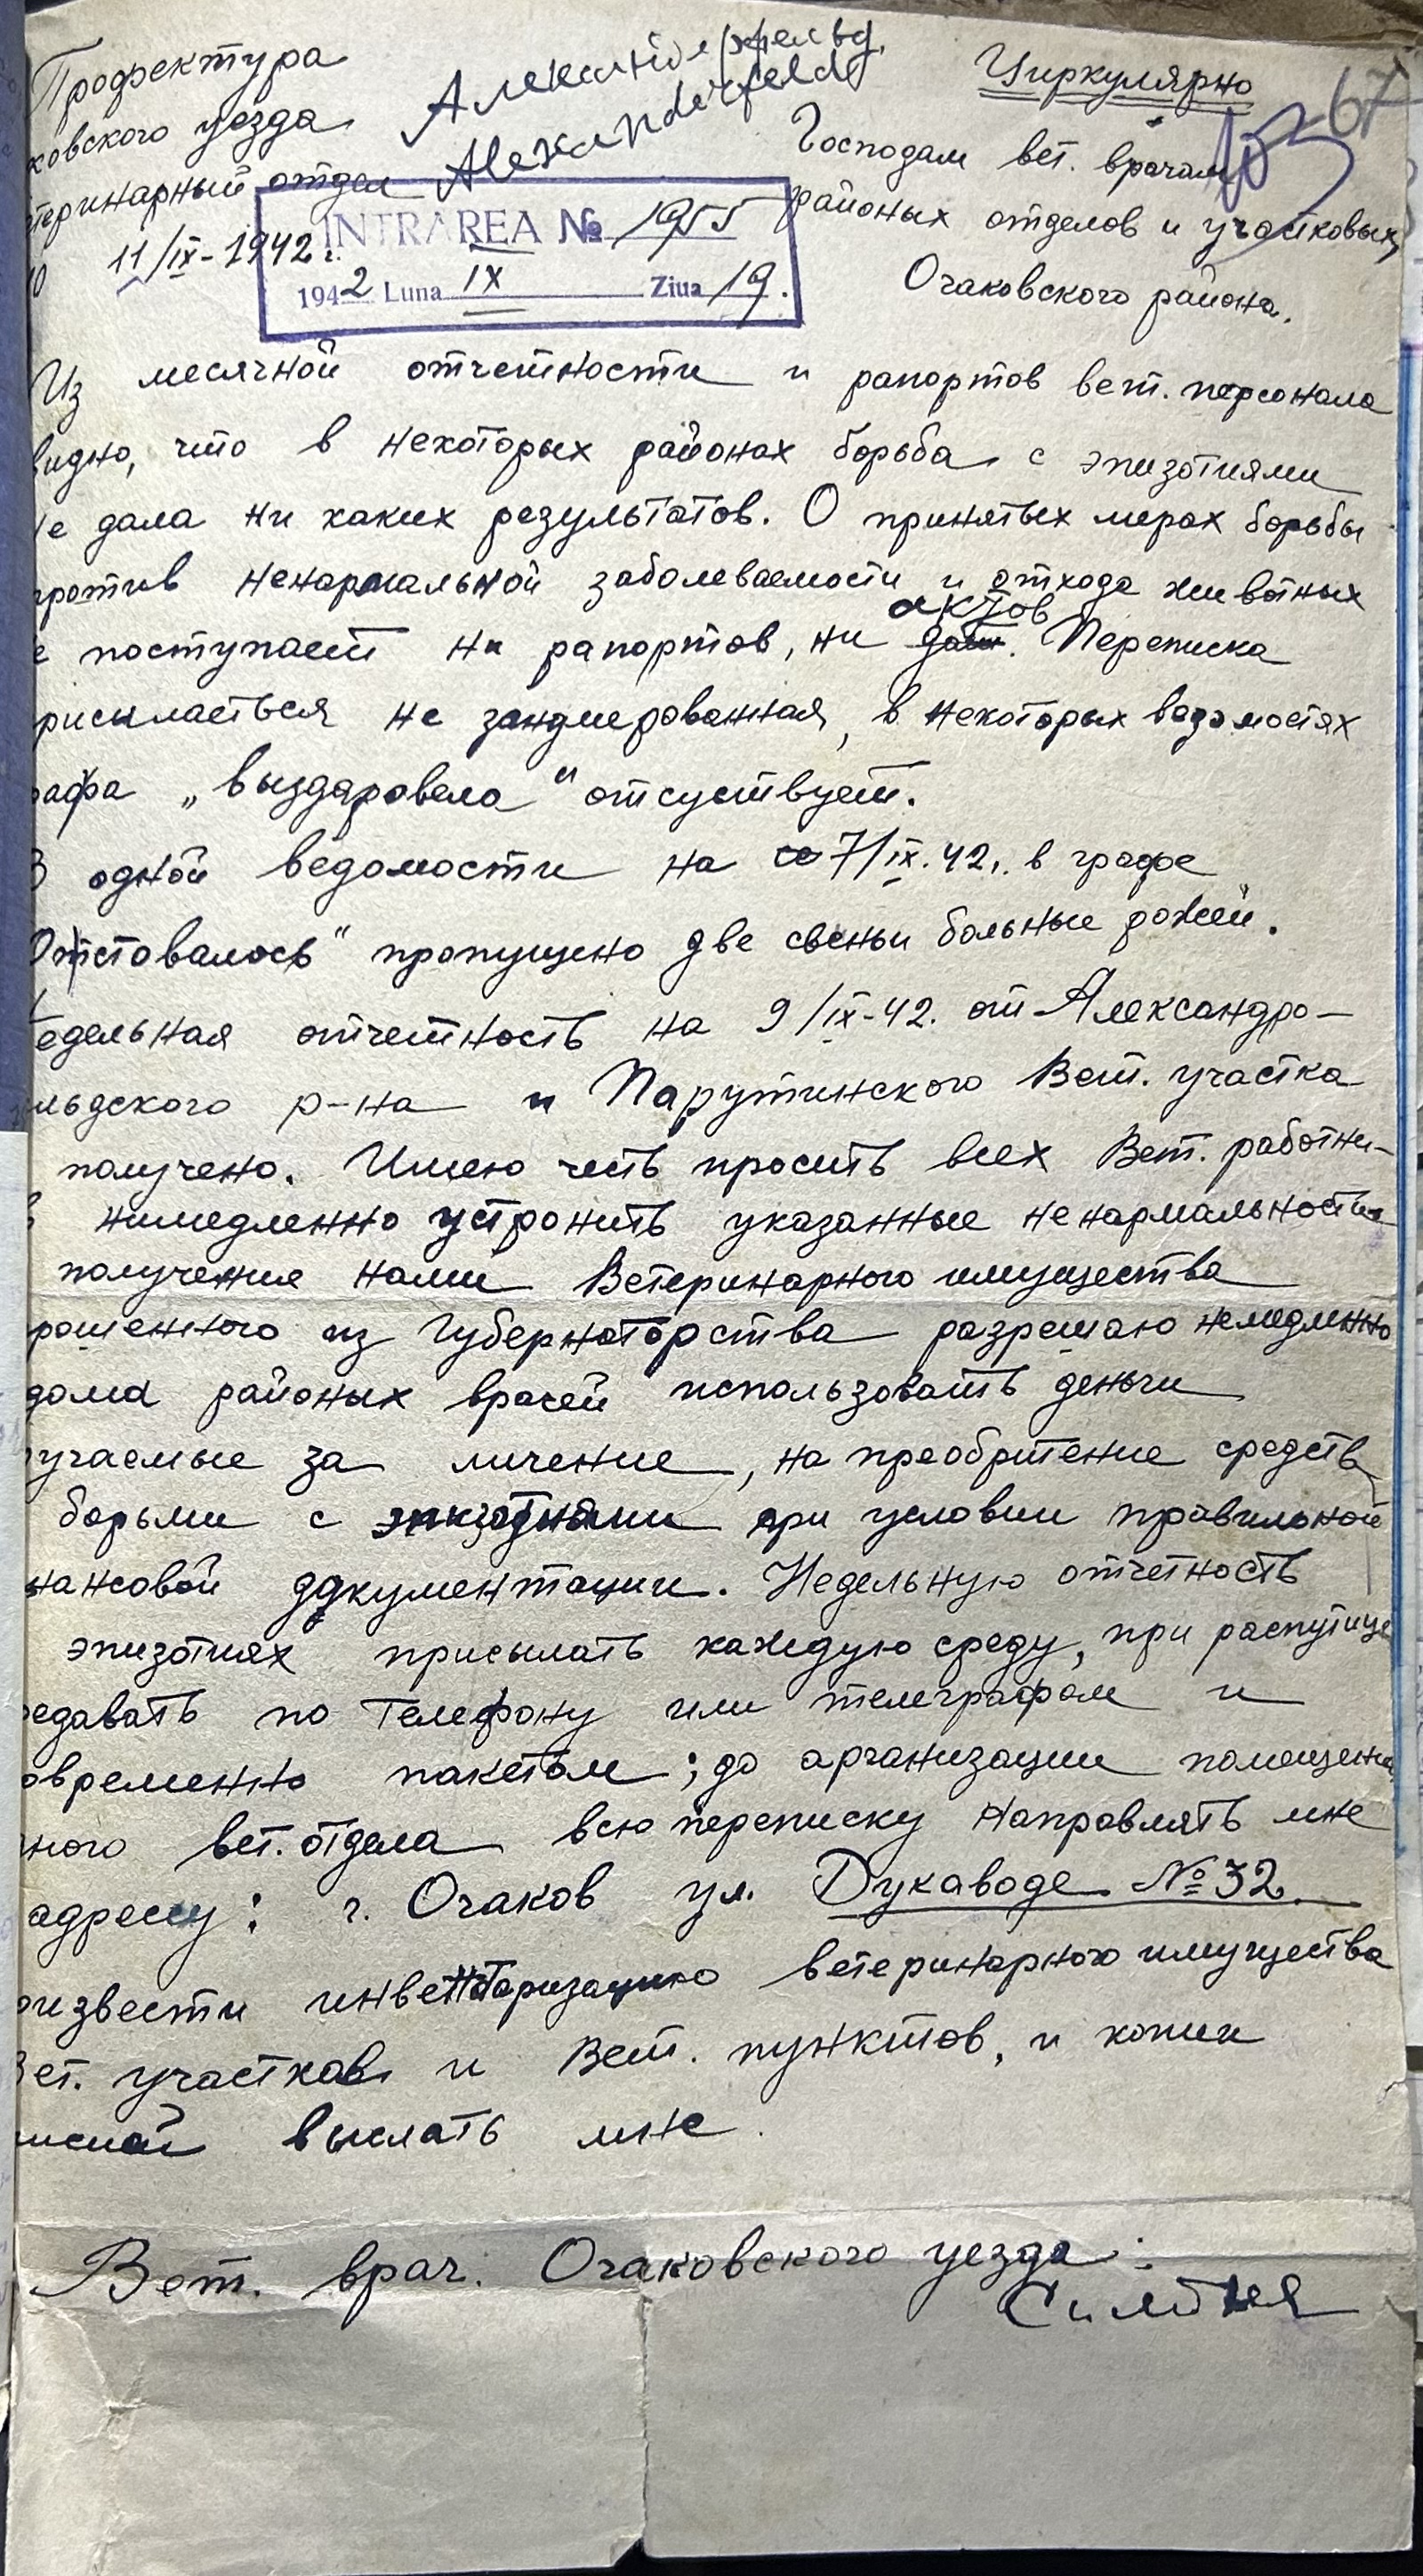 Префектура
ковского уезда
теринарный отдел
11/IX-1942 г.
Александерфельд
Alexanderfeld
Циркулярно
67
Господам вет. врачам
районых отделов и участковых
Очаковского района.
INTRAREA № 1955
1942 Luna IX Ziua 19.
Из месячной отчетности и рапортов вет. персонала
видно, что в некоторых районах борьба с эпизотиями
не дала ни каких результатов. О принятых мерах борьбы
против ненармальной заболеваемости и отхода животных
е поступает ни рапортов, ни актов. Переписка
рисылаеться не занумерованная, в некоторых ведомостях
рафа „выздаровело" отсуствует.
В одной ведомости на 7/IX.42. в графе
стовалось" пропущено две свеньи больные рожей.
едельная отчетность на 9/IX-42. от Александро-
льдского р-на и Парутинского Вет. участка
получено. Имею честь просить всех Вет. работни-
в нимедленно устронить указанные ненармальности
получения нами Ветеринарного имущества
рошенного из Губернаторства разрешаю немедленно
дома районых врачей использовать деньги
учаемые за личение, на преобритение средств
борьми с эпизотиями при условии правильной
нансовой документации. Недельную отчетность
эпизотиях присылать каждую среду, при распутице
редавать по телефону или телеграфом и
овременно пакетом; до арганизации помещения
ного вет. отдела всю переписку направлять мне
адресу: г. Очаков ул. Дукаводе №32
оизвести инвентаризацию ветеринарного имущества
Вет. участков и Вет. пунктов, и копии
писей выслать мне.
Вет. врач. Очаковского уезда: